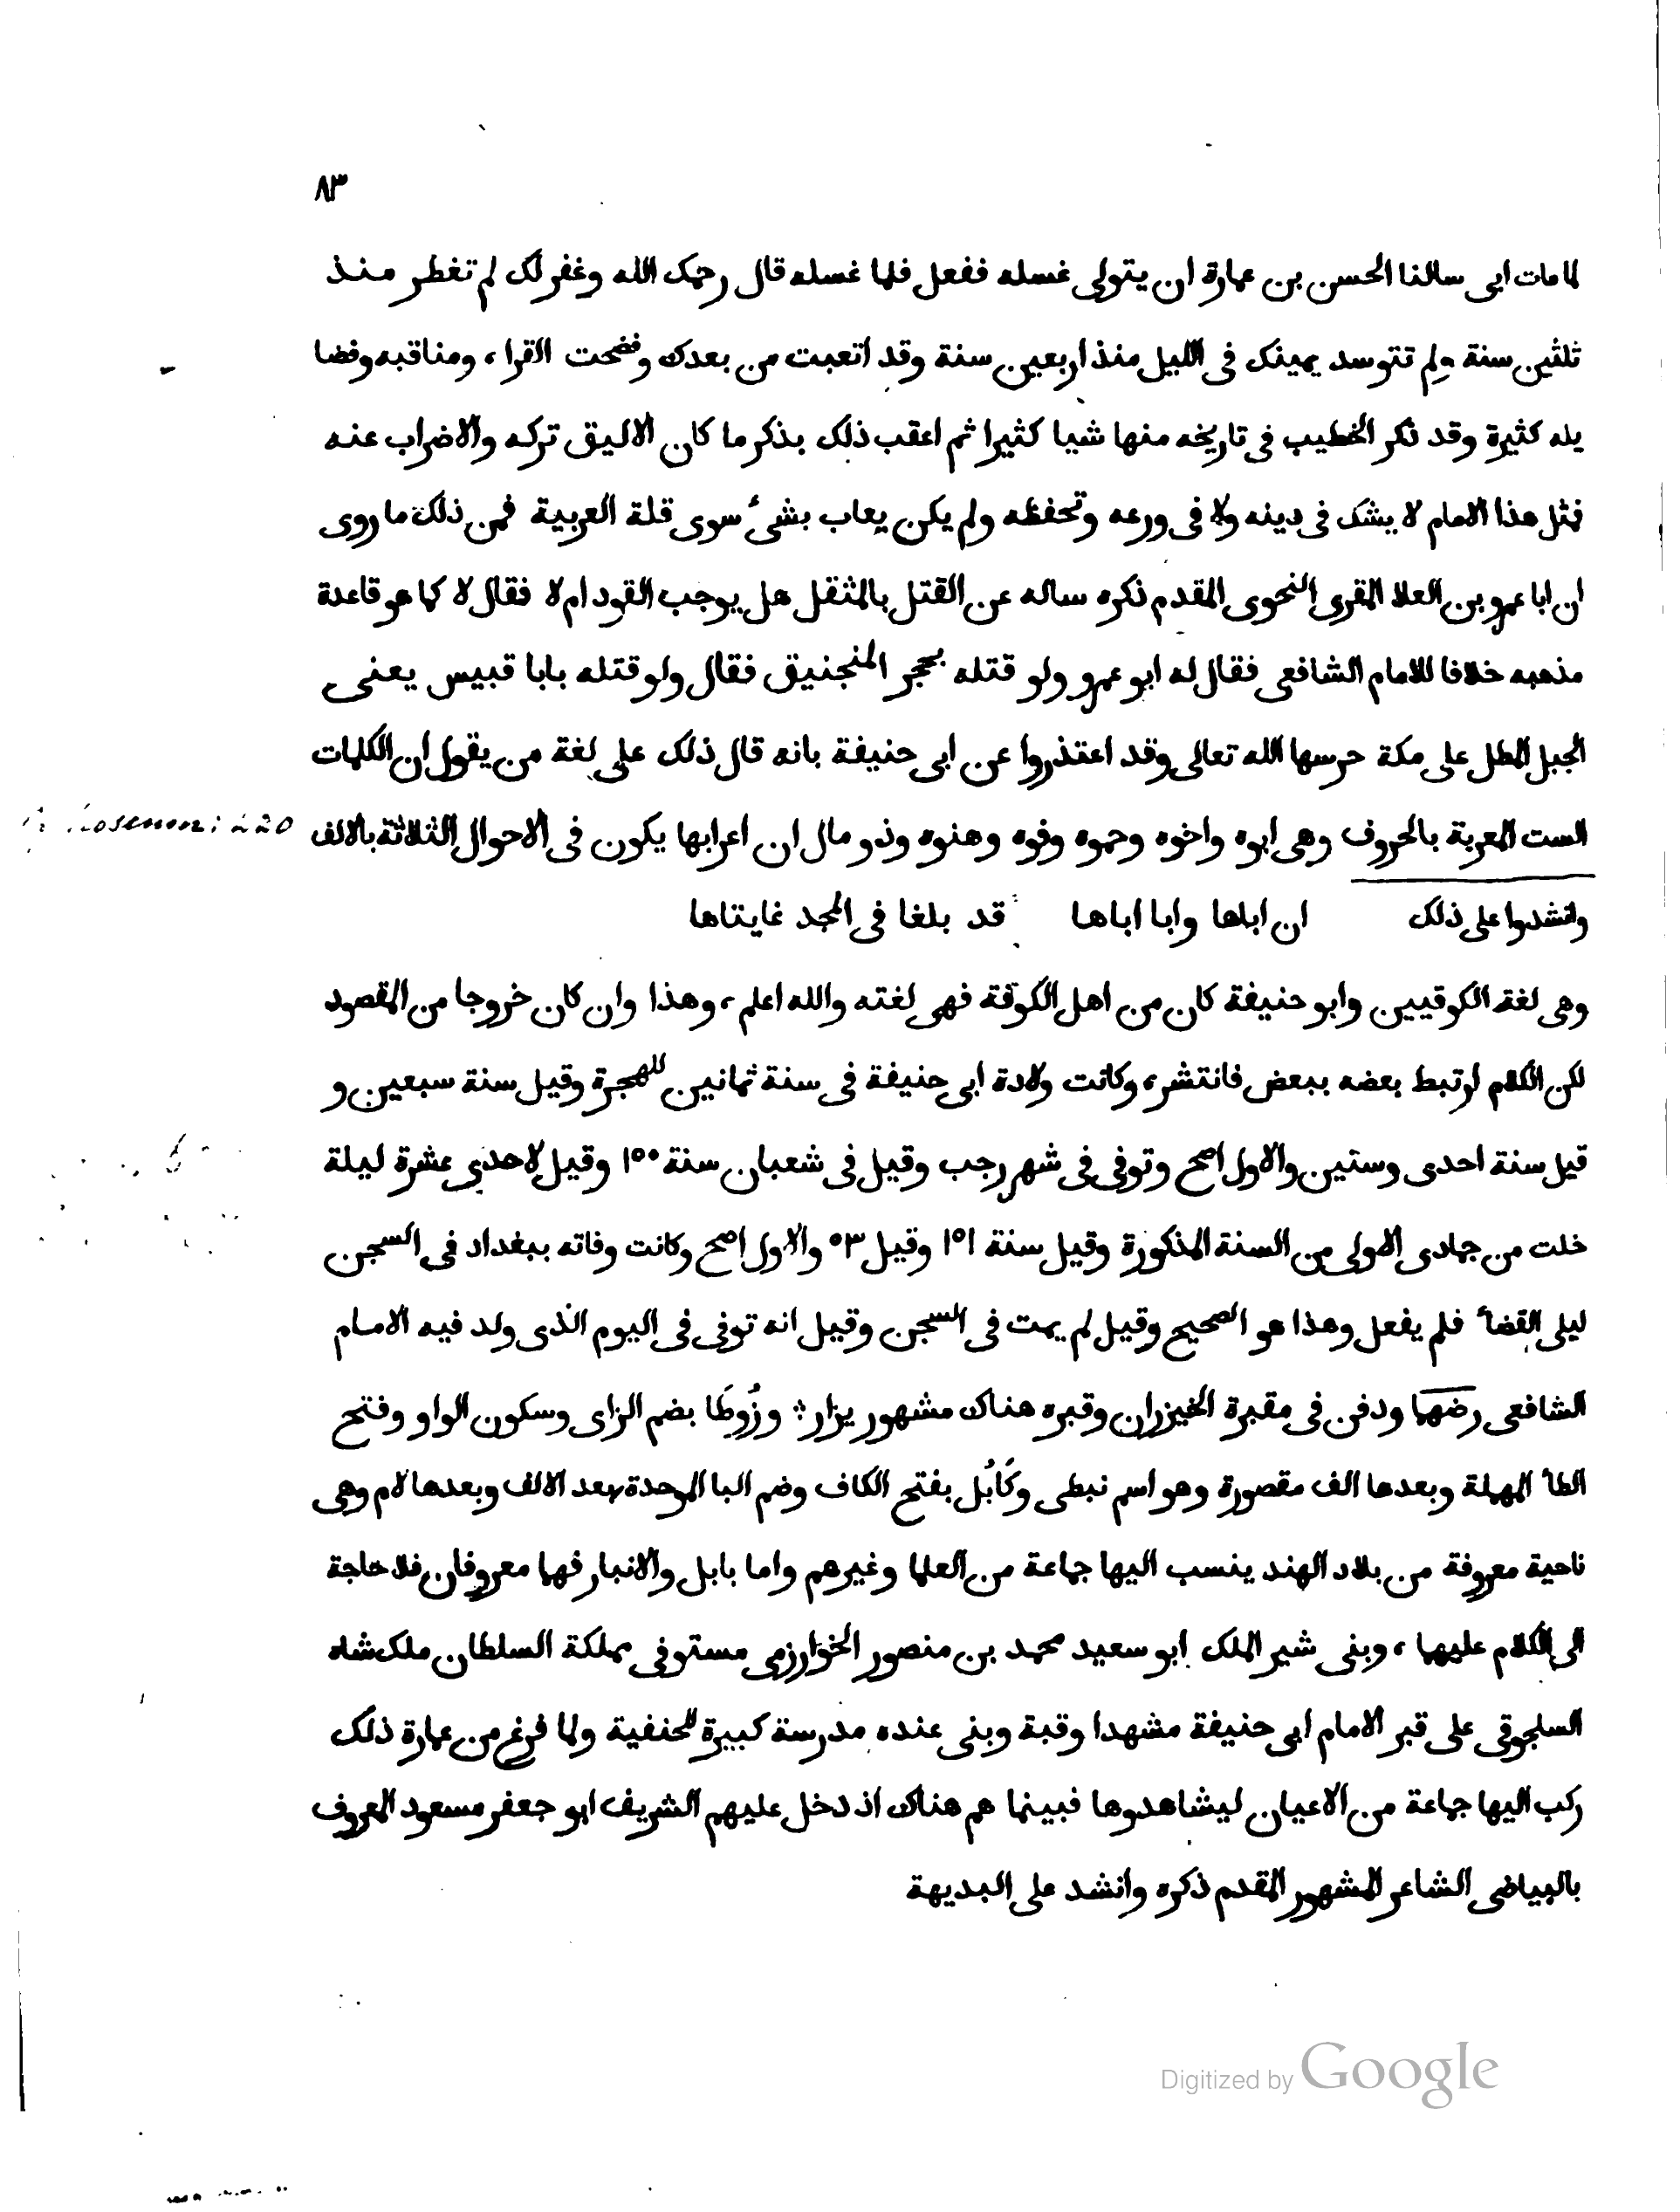 ٨٣
لما مات ابى سالنا الحسن بن عمارة ان يتولى غسله ففعل فلما غسله قال رحمك الله وغفر لك لم تفطر منذ
ثلثين سنة ولم تتوسد يمينك فى الليل منذ اربعين سنة وقد اتعبت من بعدك وفضحت القرا، ومناقبه وفضا
يله كثيرة وقد ذكر الخطيب فى تاريخه منها شيا كثيرا ثم اعقب ذلك بذكر ما كان الاليق تركه والاضراب عنه
فمثل هذا الامام لا يشك فى دينه ولا فى ورعه وتحفظه ولم يكن يعاب بشىء سوى قلة العربية فمن ذلك ما روى
ان ابا عمرو بن العلا المقرى النحوى المقدم ذكره ساله عن القتل بالمثقل هل يوجب القود ام لا فقال لا كما هو قاعدة
مذهبه خلافا للامام الشافعى فقال له ابو عمرو ولو قتله بحجر المنجنيق فقال ولو قتله بابا قبيس يعنى
الجبل المطل على مكة حرسها الله تعالى وقد اعتذروا عن ابى حنيفة بانه قال ذلك على لغة من يقول ان الكلمات
الست المعربة بالحروف وهى ابوه واخوه وحموه وفوه وهنوه وذو مال ان اعرابها يكون فى الاحوال الثلاثة بالالف
220
وانشدوا على ذلك ان اباها وابا اباها قد بلغا فى المجد غايتاها
وهى لغة الكوفيين وابو حنيفة كان من اهل الكوفة فهى لغته والله اعلم، وهذا وان كان خروجا من المقصود
لكن الكلام ارتبط بعضه ببعض فانتشر، وكانت ولادة ابى حنيفة فى سنة ثمانين للهجرة وقيل سنة سبعين و
قيل سنة احدى وستين والاول اصح وتوفى فى شهر رجب وقيل فى شعبان سنة ١٥٠ وقيل لاحدى عشرة ليلة
خلت من جمادى الاولى من السنة المذكورة وقيل سنة ١٥١ وقيل ٥٣ والاول اصح وكانت وفاته ببغداد فى السجن
ليلى القضأ فلم يفعل وهذا هو الصحيح وقيل لم يمت فى السجن وقيل انه توفى فى اليوم الذى ولد فيه الامام
الشافعى رضهما ودفن فى مقبرة الخيزران وقبره هناك مشهور يزار ؛ وزُوطَا بضم الزاى وسكون الواو وفتح
الطأ المهملة وبعدها الف مقصورة وهو اسم نبطى وكَابُل بفتح الكاف وضم البا الموحدة بعد الالف وبعدها لام وهى
ناحية معروفة من بلاد الهند ينسب اليها جماعة من العلما وغيرهم واما بابل والانبار فهما معروفان فلا حاجة
الى الكلام عليهما، وبنى شير الملك ابو سعيد محمد بن منصور الخوارزمى مستوفى مملكة السلطان ملكشاه
السلجوقى على قبر الامام ابى حنيفة مشهدا وقبة وبنى عنده مدرسة كبيرة للحنفية ولما فرغ من عمارة ذلك
ركب اليها جماعة من الاعيان ليشاهدوها فبينما هم هناك اذ دخل عليهم الشريف ابو جعفر مسعود المعروف
بالبياضى الشاعر المشهور المقدم ذكره وانشد على البديهة
Digitized by Google